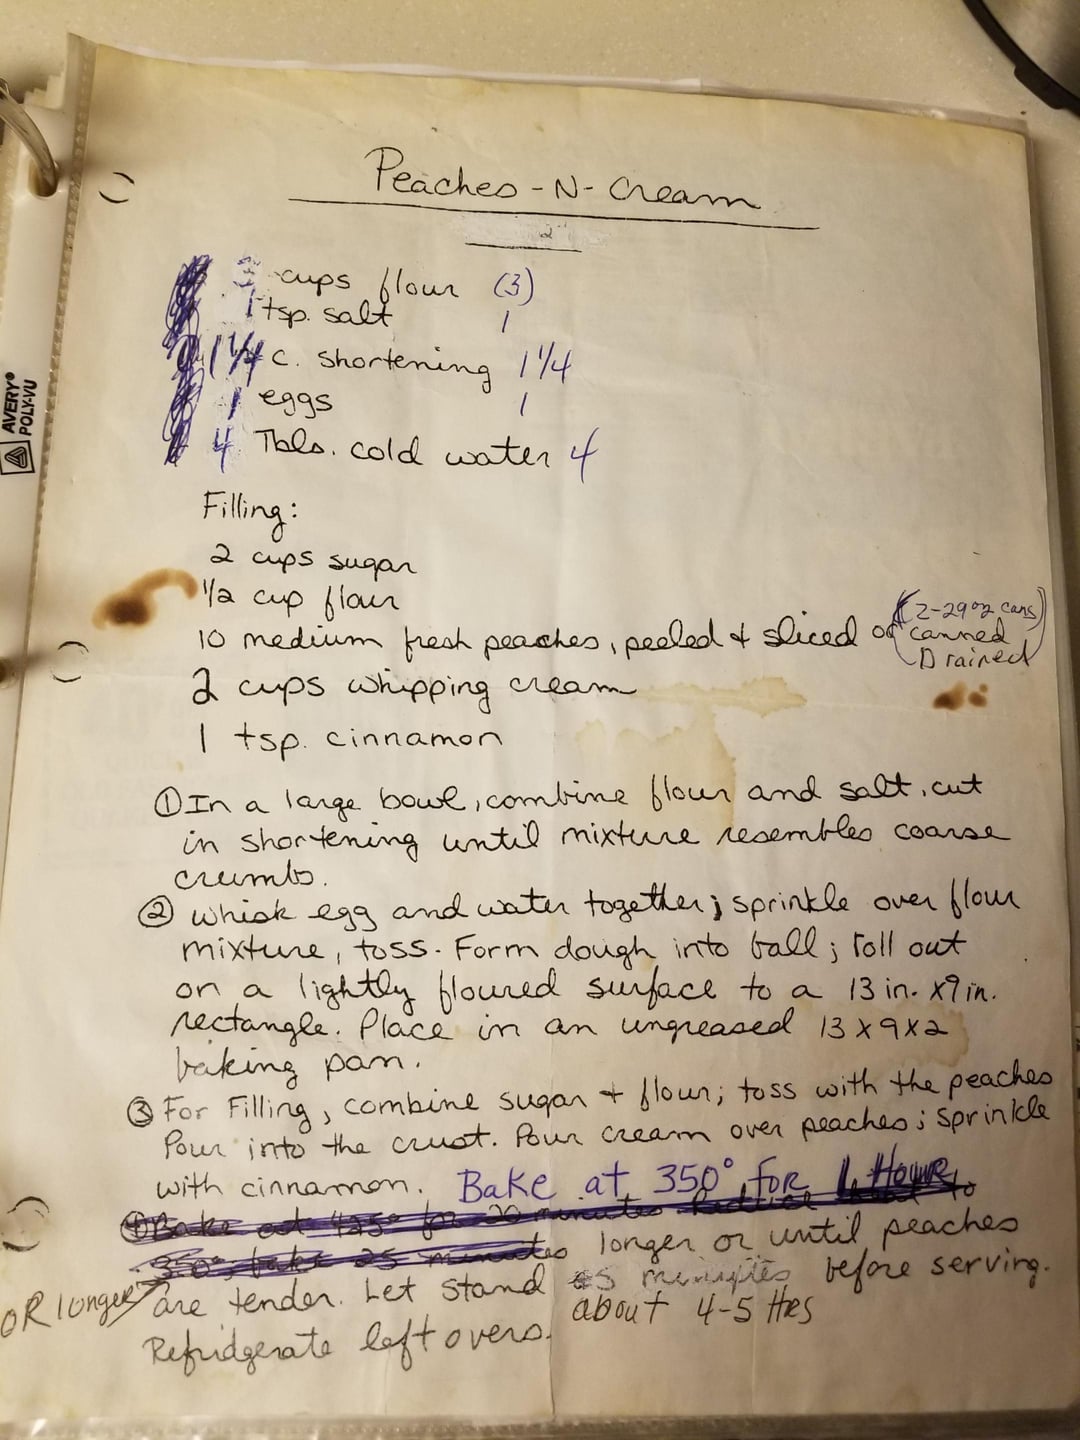 AVERY®
POLY-VU
Peaches-N-Cream
3 cups flour (3)
1 tsp. salt 1
1 1/4 c. shortening 1 1/4
1 eggs 1
4 Tbls. cold water 4
Filling:
2 cups sugar
1/2 cup flour
10 medium fresh peaches, peeled + sliced or (2-29oz cans)
canned
Drained
2 cups whipping cream
1 tsp. cinnamon
① In a large bowl, combine flour and salt, cut
in shortening until mixture resembles coarse
crumbs.
② whisk egg and water together; sprinkle over flour
mixture, toss. Form dough into ball; roll out
on a lightly floured surface to a 13 in. x 9 in.
rectangle. Place in an ungreased 13 x 9 x 2
baking pan.
③ For Filling, combine sugar + flour; toss with the peaches
Pour into the crust. Pour cream over peaches; sprinkle
with cinnamon. Bake at 350° for 1 Hour
④ Bake at 425° for 20 minutes. Reduce heat to
350°; bake 25 minutes longer or until peaches
OR longer are tender. Let stand minutes before serving.
about 4-5 Hrs
Refridgerate left overs.